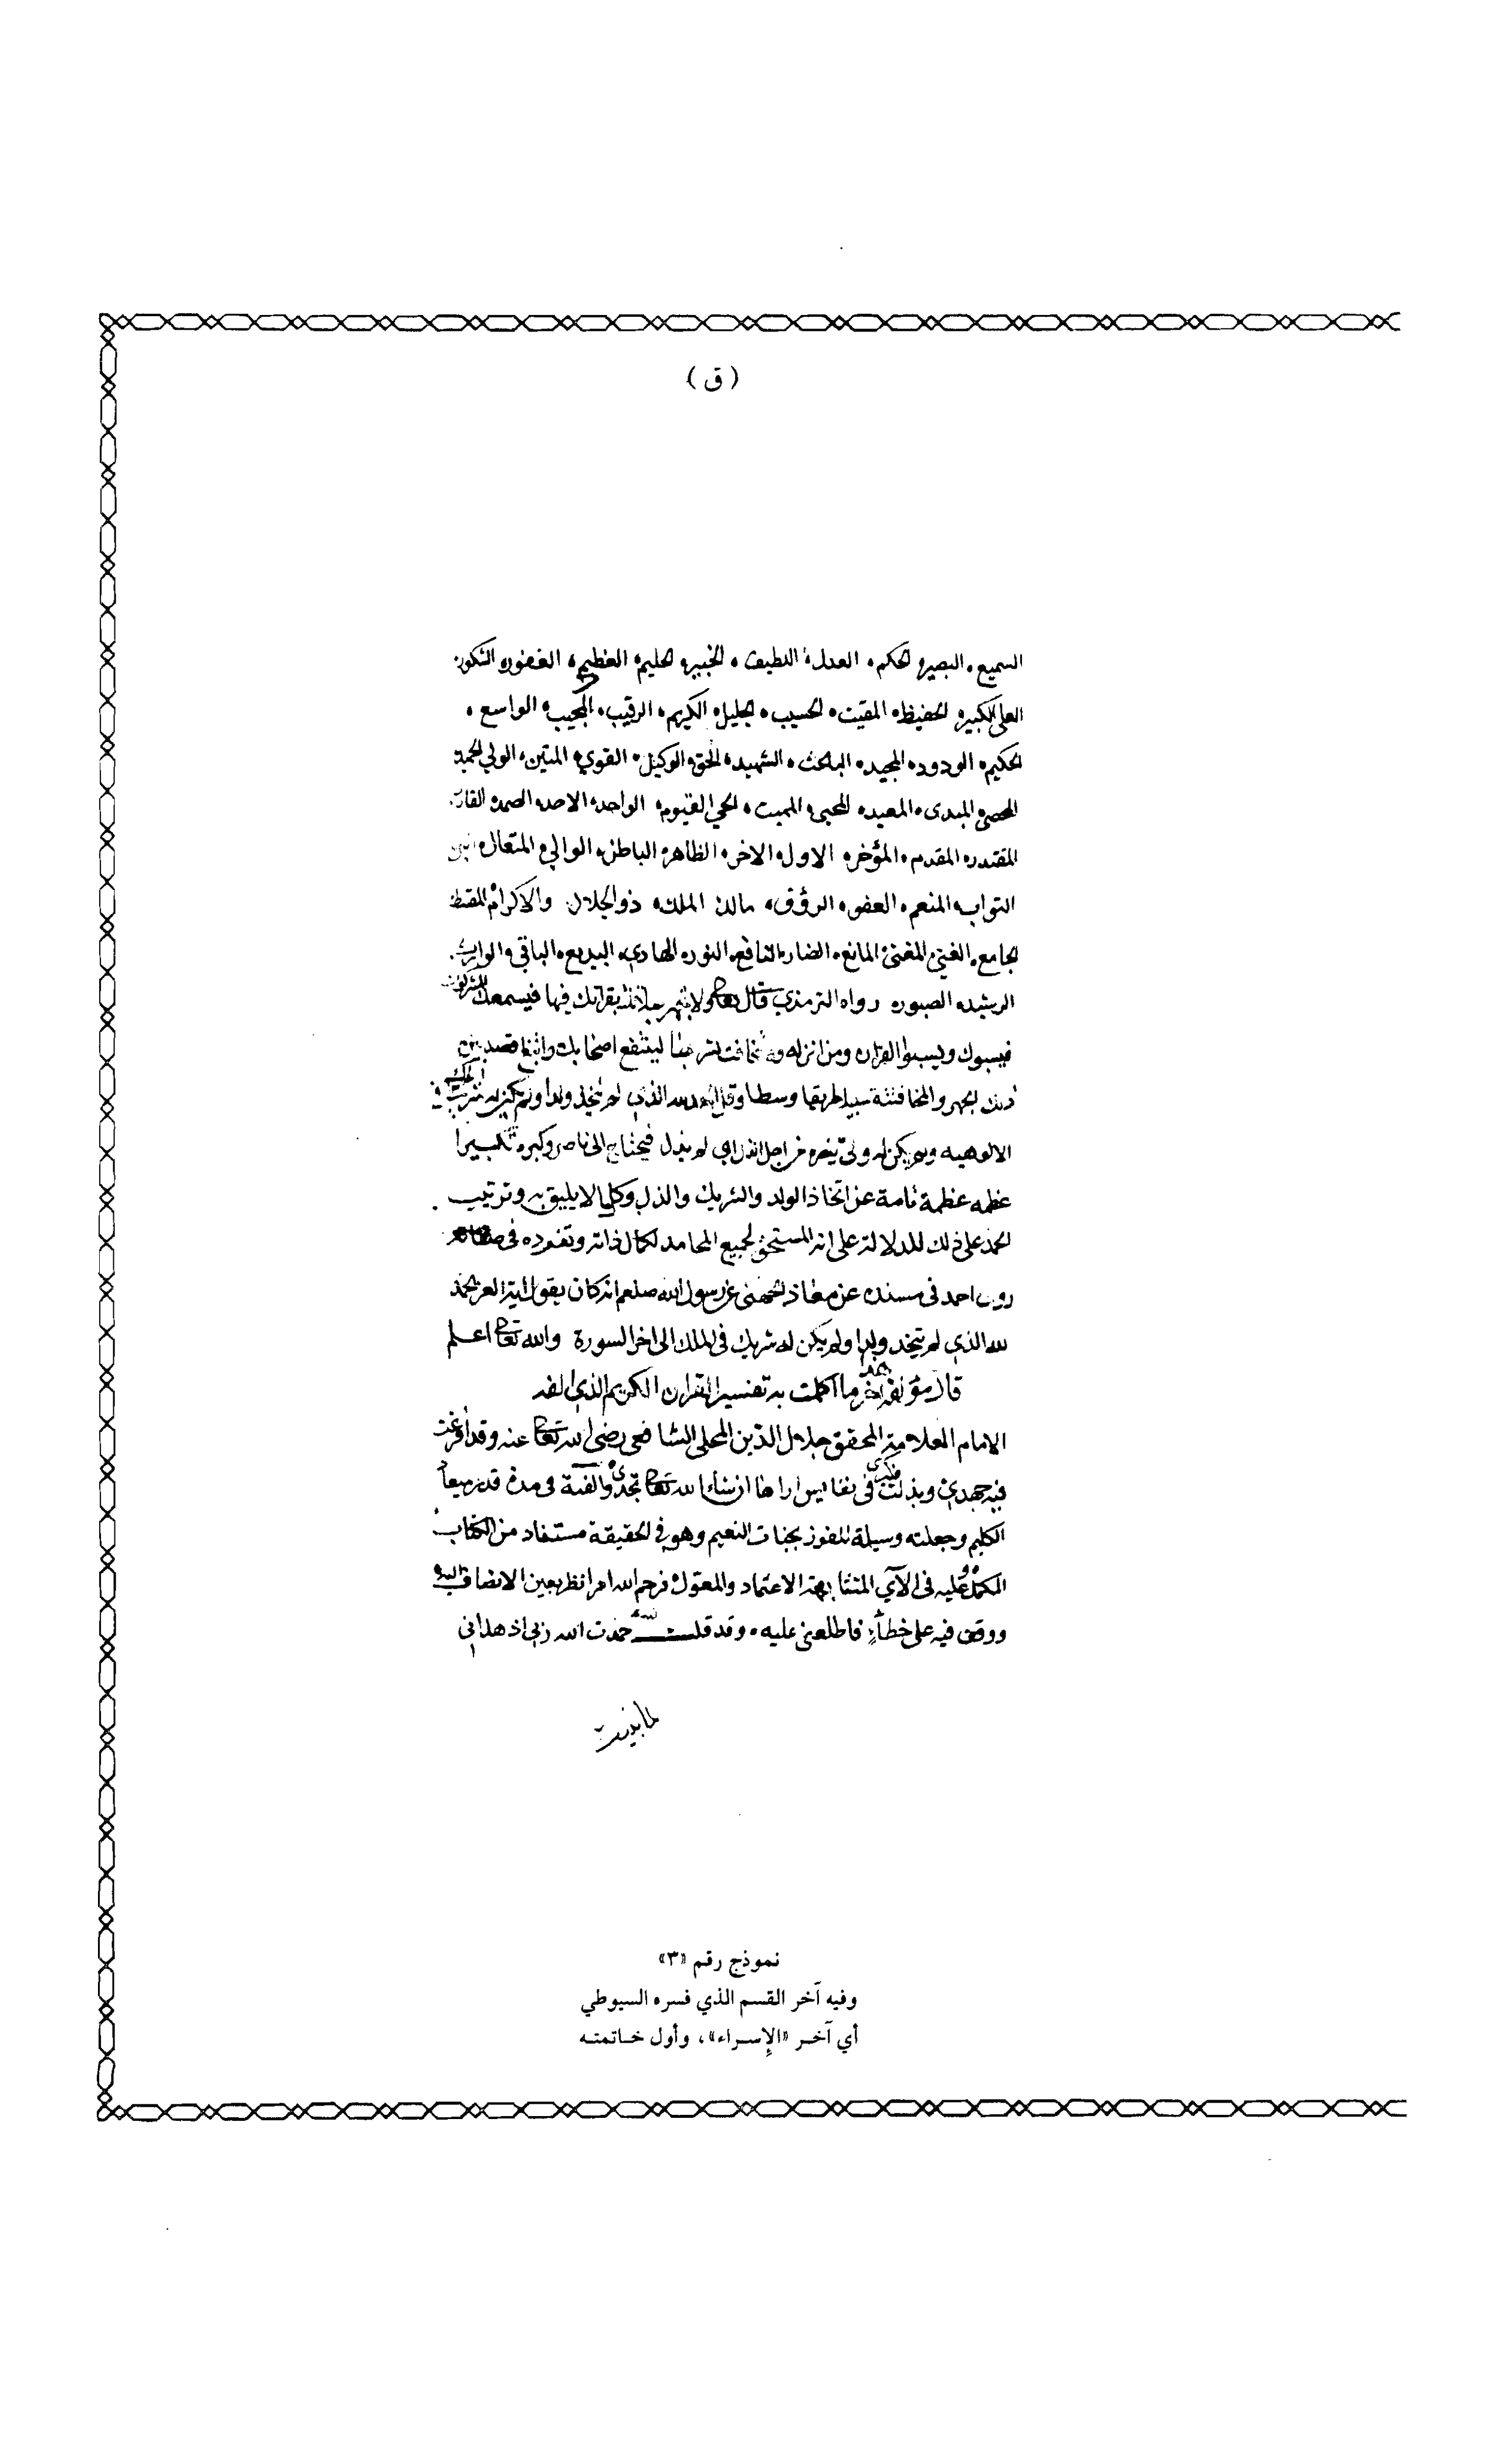 (ق)
السميع، البصير، الحكم، العدل، اللطيف، الخبير، الحليم، العظيم، الغفور، الشكور
العلي، الكبير، الحفيظ، المقيت، الحسيب، الجليل، الكريم، الرقيب، المجيب، الواسع،
الحكيم، الودود، المجيد، الباعث، الشهيد، الحق، الوكيل، القوي، المتين، الولي، الحميد
المحصي، المبدى، المعيد، المحيى، المميت، الحي، القيوم، الواحد، الاحد، الصمد، القادر
المقتدر، المقدم، المؤخر، الاول، الاخر، الظاهر، الباطن، الوالي، المتعال،
التواب، المنعم، العفو، الرؤف، مالك الملك، ذو الجلال والاكرام، المقسط
الجامع، الغني، المغني، المانع، الضار، النافع، النور، الهادي، البديع، الباقي، الوارث،
الرشيد، الصبور، رواه الترمذي قال تعالى ولا تجهر بصلاتك بقراتك فيها فيسمعك المشركون
فيسبوك ويسبوا القران ومن انزله ولا تخافت تسر بها لينتفع اصحابك وابتغ اقصد بين
ذلك الجهر والمخافتة سبيلا طريقا وسطا وقل الحمد لله الذي لم يتخذ ولدا ولم يكن له شريك في الملك
الالوهية ولم يكن له ولي ينصره من اجل الذل اي لم يذل فيحتاج الى ناصر وكبره تكبيرا
عظمه عظمة تامة عن اتخاذ الولد والشريك والذل وكل ما لا يليق به وترتيب
الحمد على ذلك للدلالة على انه المستحق لجميع المحامد لكمال ذاته وتفرده في صفاته
روى احمد في مسنده عن معاذ الجهني عن رسول الله صلعم انه كان يقول اية العز الحمد
لله الذي لم يتخذ ولدا ولم يكن له شريك في الملك الى اخر السورة والله تعالى اعلم
قال مؤلفه هذا اخر ما اكملت به تفسير القران الكريم الذي الفه
الامام العلامة المحقق جلال الدين المحلي الشافعي رضي الله تعالى عنه وقد افرغت
فيه جهدي وبذلت فكري في نفايس اراها ان شاء الله تعالى تجدي والفته في مدة قدر ميعاد
الكليم وجعلته وسيلة للفوز بجنات النعيم وهو في الحقيقة مستفاد من الكتاب
المكمل وعليه في الآي المتشابهة الاعتماد والمعول فرحم الله امرا نظر بعين الانصاف اليه
ووقف فيه على خطأ فاطلعني عليه، وقد قلت حمدت الله ربي اذ هداني
نموذج رقم «٣»
وفيه آخر القسم الذي فسره السيوطي
أي آخر «الإسراء»، وأول خاتمته